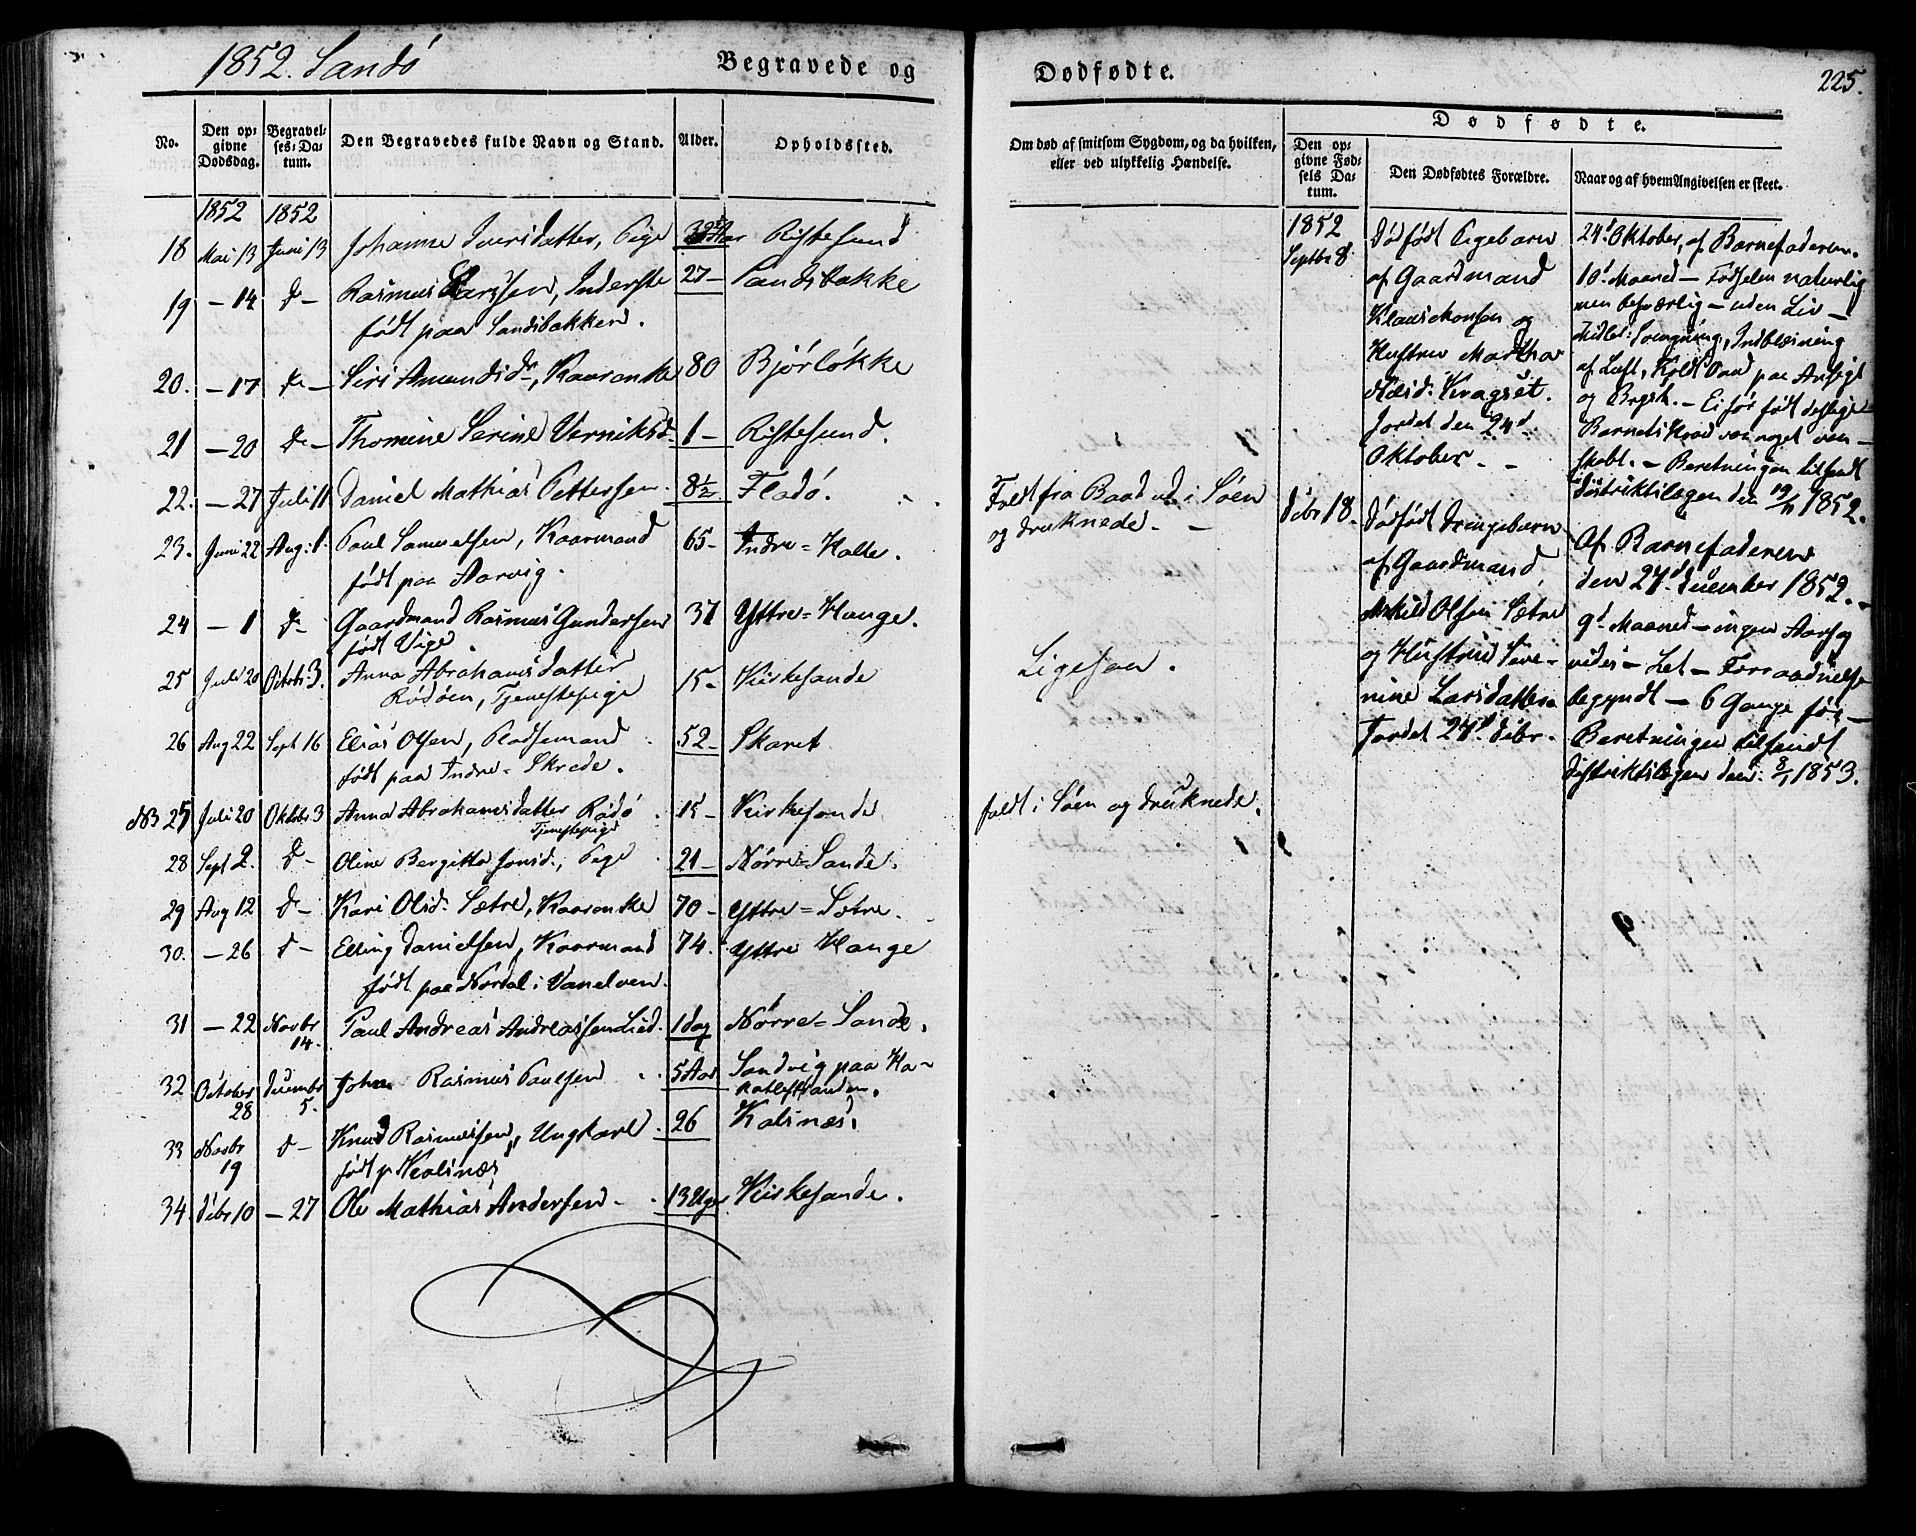 1852. Sandö
Begravede og
No.
Den op-
givne
Dødsdag.
Begravel-
ses-Da-
tum.
Den Begravedes fulde Navn og Stand.
Alder.
Opholdssted.
1852 1852
18 Mai 13 Juni 13 Johanne Iversdatter, Pige Aar Ristesund
19 – 14 D– Rasmus Larssen, Inderste 27– Sandsbakke
født paa Sandsbakken.
20. – 17 D– Siri Amundsdr, Kaaronke 80 Bjørløkke
21 – 20 D– Thomine Serine Verniksd. 1– Ristesund.
22. – 27 Juli 11 Daniel Mathias Pettersen 8½ Flødö.
23. Juni 22 Aug: 1. Paul Samuelsen, Kaarmand 65– Indre=Holte.
født paa Aarvig.
24 – 1 D– Gaardmand Rasmus Gundersen 37 Yttre=Hauge.
født Vige.
25 Juli 20 Octob: 3. Anna Abrahamsdatter 15– Kirkesande
Rödöen, Tjenestepige
26 Aug 22 Sept 16 Elias Olsen, Pladsemand 52– Skaret
født paa Indre- Skrede.
NB 25 Juli 20 Oktobr 3 Anna Abrahamsdatter Rödö 15– Kirkesande
Tjenestepige
28 Sept 2. D– Oline Bergitte Jonsd., Pige 21– Nørre=Sande.
29 Aug 12 D– Kari Olsd: Sætre, Kaaronke 70– Yttre=Sætre.
30. – 26 D– Elling Danielsen, Kaarmand 74. Yttre Hauge
født paa Nordal i Vanelven.
31 – 22 Novbr Paul Andreas Andreassen Lied. 1 dag Nørre=Sande.
14.
32 October Decembr John Rasmus Paulsen 5 Aar Sandvig paa Ha-
28 5.
33 Novbr D– Knud Rasmussen, Ungkarl. 26 Kalsnæs.
19 født p. Kvalsnæs
34. Dcbr 10 – 27 Ole Mathias Andersen 13 Uger Kirkesande.
Dødfødte.
225.
Om død af smitsom Sygdom, og da hvilken,
eller ved ulykkelig Hændelse.
Dødfødte.
Den op-
givne Fød-
sels Da-
tum.
Den Dødfødtes Forældre.
Naar og af hvem Angivelsen er skeet.
Faldt fra Baad ud i Søen
og druknede.
Ligesaa.
faldt i Søen og druknede.
1852
Septbr 8.
Dødfødt Pigebarn
af Gaardmand
Klaus Monsen og
Hustru Martha
Kragset.
Jordet den 24d
Oktober.
24d Oktober, af Barnefaderen.
10d Maaned – Fødselen naturlig
men besværlig – uden Liv –
Midler: Svingning, Indblæsning
af Luft, Koldt Vand paa Ansigt
og Bryst. – Ei før født dødfødt
Barnets Hoved var noget van-
skabt. – Beretningen tilsendt
Distriktslægen den 19/11 1852.
Dcbr 18.
Dødfødt Drengebarn
af Gaardmand
Olsen Sætre
og Hustru Seve-
rine Larsdatter
Jordet 24d Dcbr.
Af Barnefaderen
den 24d December 1852.
9d Maaned – ingen Aarsag
vides – Let – Forraadnelse
begyndt – 6 Gange før –
Beretningen tilsendt
Distriktslægen den 8/1 1853.